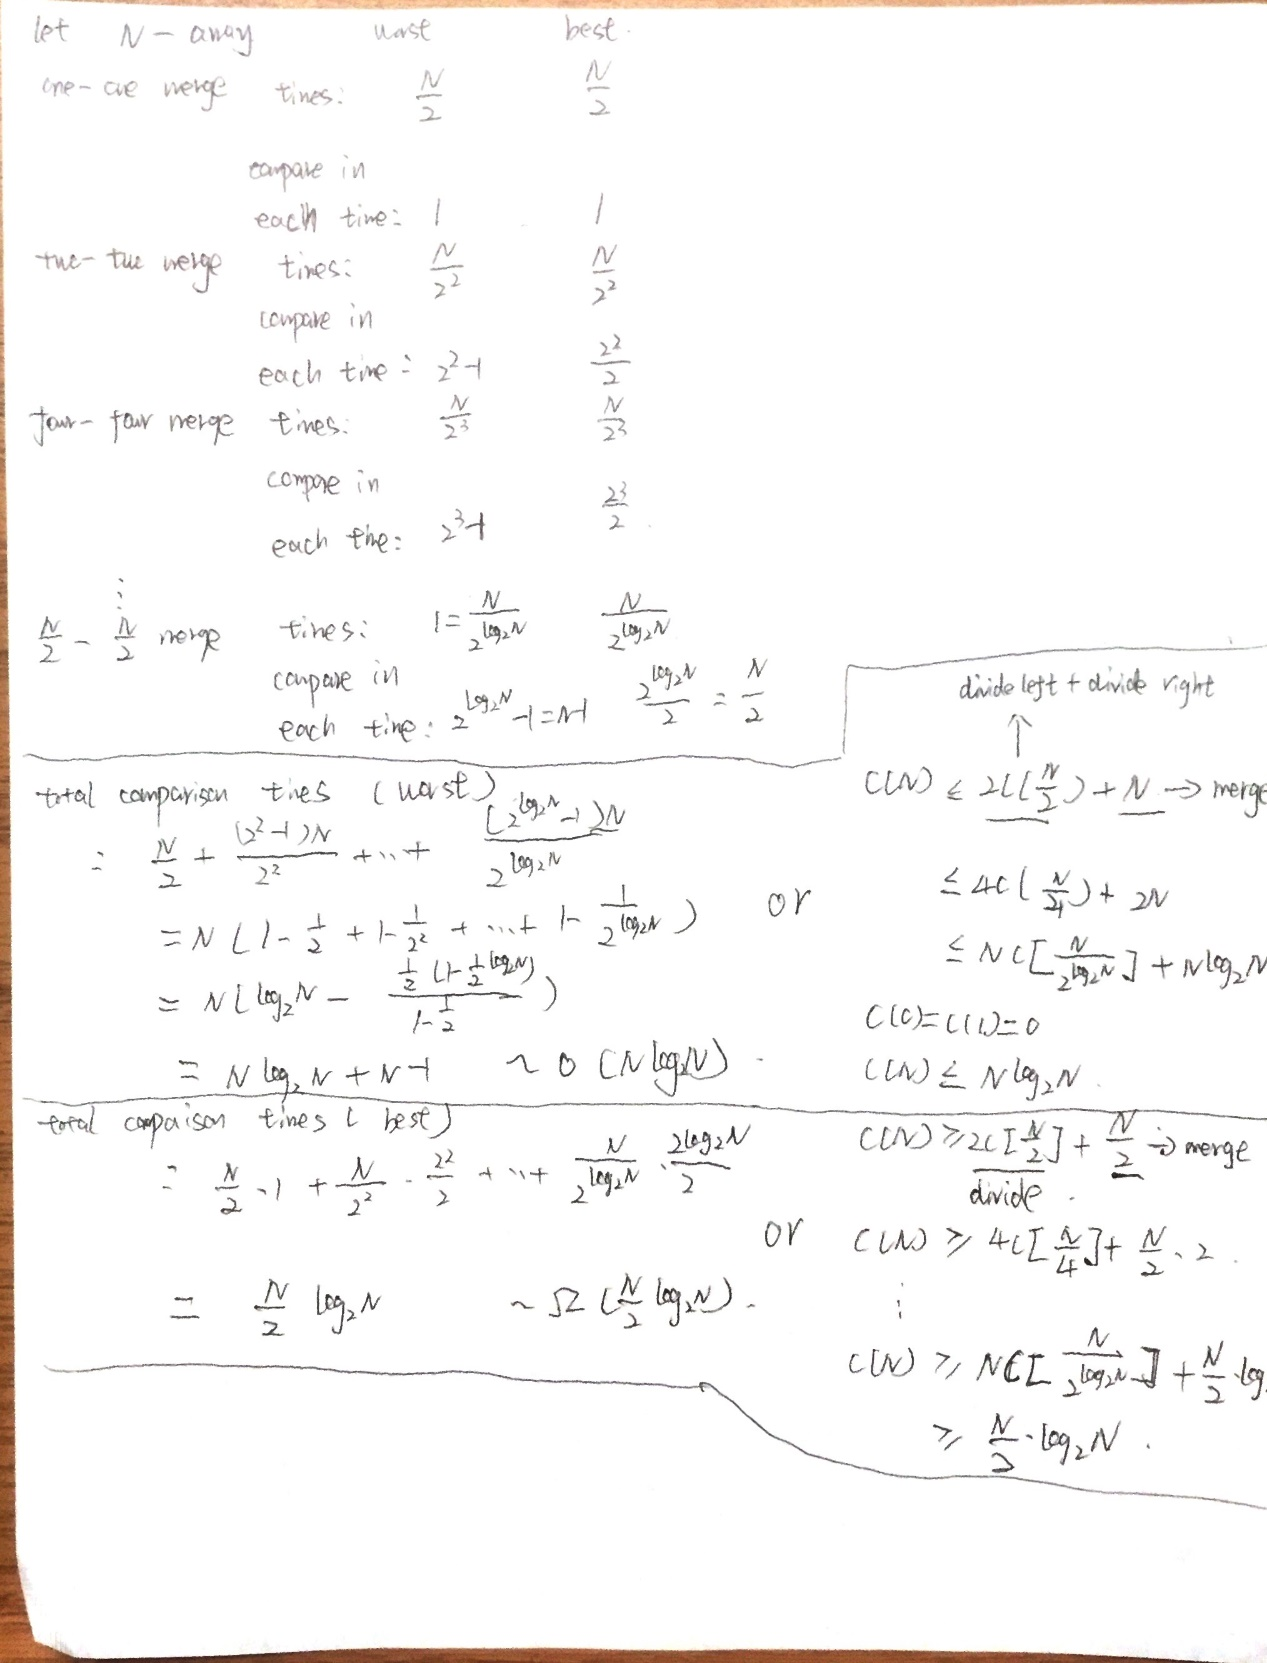 let N - array worst best.
one - one merge times: N/2 N/2
compare in
each time: 1 1
two - two merge times: N/2² N/2²
compare in
each time: 2²-1 2²/2
four - four merge times: N/2³ N/2³
compare in
each time: 2³-1 2³/2
⋮
N/2 - N/2 merge times: 1 = N/2^(log₂N) N/2^(log₂N)
compare in
each time: 2^(log₂N) -1 = N-1 2^(log₂N)/2 = N/2
total comparison times (worst)
= N/2 + (2²-1)N/2² + ... + (2^(log₂N) -1)N/2^(log₂N)
= N(1 - 1/2 + 1 - 1/2² + ... + 1 - 1/2^(log₂N))
= N(log₂N - (1/2 (1 - 1/2^(log₂N)))/(1 - 1/2))
= N log₂N + N-1 ~ O(N log₂N).
or
divide left + divide right
↑
C(N) ≤ 2C(N/2) + N → merge
≤ 4C(N/4) + 2N
≤ NC[N/2^(log₂N)] + N log₂N
C(0) = C(1) = 0
C(N) ≤ N log₂N.
total comparison times (best)
= N/2 · 1 + N/2² · 2²/2 + ... + N/2^(log₂N) · 2log₂N/2
= N/2 log₂N ~ Ω(N/2 log₂N).
or
C(N) ≥ 2C[N/2] + N/2 → merge
divide.
C(N) ≥ 4C[N/4] + N/2 · 2.
⋮
C(N) ≥ NC[N/2^(log₂N)] + N/2 · log
≥ N/2 · log₂N.